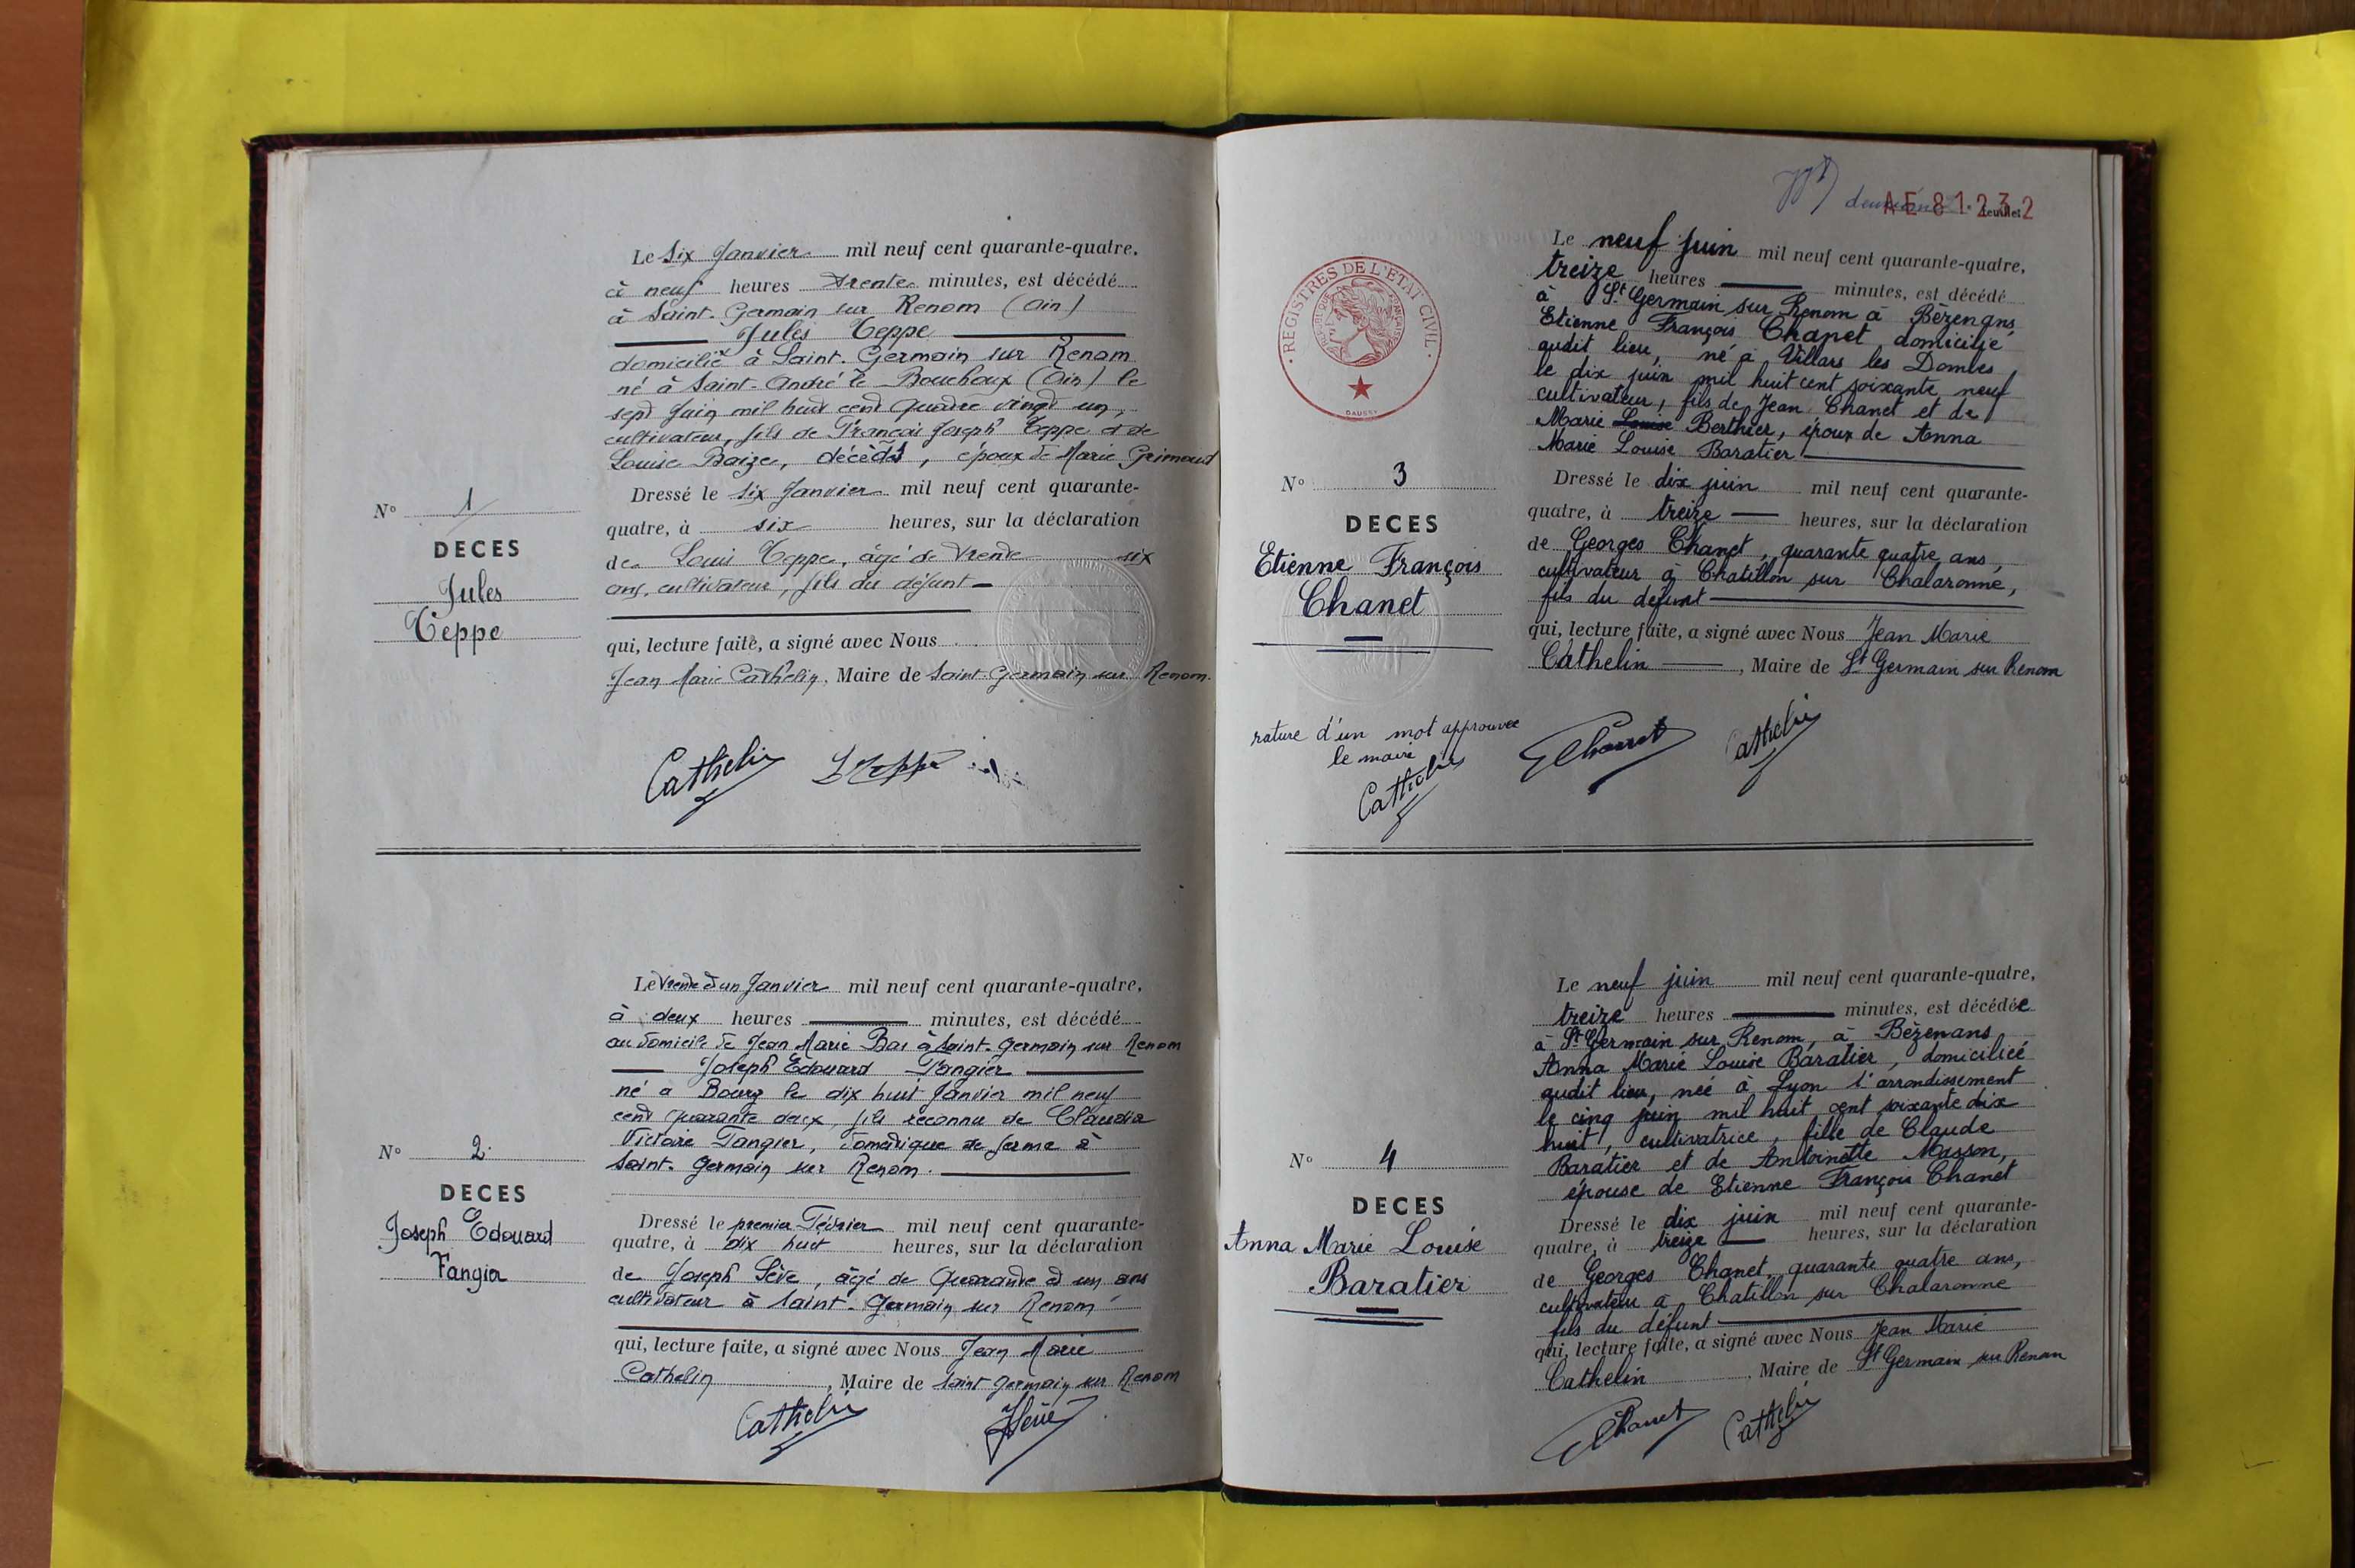 Le six Janvier mil neuf cent quarante-quatre,
à neuf heures trente minutes, est décédé
à Saint-Germain sur Renom (Ain)
Jules Teppe
domicilié à Saint-Germain sur Renom
né à Saint-André le Bouchoux (Ain) le
sept Juin mil huit cent quatre vingt un,
cultivateur, fils de François Joseph Teppe et de
Louise Baize, décédés, époux de Marie Grimaud
Dressé le six Janvier mil neuf cent quarante-
quatre, à six heures, sur la déclaration
de Louis Teppe, âgé de trente six
ans, cultivateur, fils du défunt
qui, lecture faite, a signé avec Nous
Jean Marie Cathelin, Maire de Saint-Germain sur Renom.
N° 1
DECES
Jules
Teppe
Cathelin LTeppe
Le trente et un Janvier mil neuf cent quarante-quatre,
à deux heures minutes, est décédé
au domicile de Jean Marie Bas à Saint-Germain sur Renom
Joseph Edouard Tangier
né à Bourg le dix huit Janvier mil neuf
cent quarante deux, fils reconnu de Claudia
Victoire Tangier, domestique de ferme à
Saint-Germain sur Renom.
Dressé le premier Février mil neuf cent quarante-
quatre, à dix huit heures, sur la déclaration
de Joseph Sève, âgé de quarante et un ans
cultivateur à Saint-Germain sur Renom
qui, lecture faite, a signé avec Nous Jean Marie
Cathelin, Maire de Saint Germain sur Renom
N° 2
DECES
Joseph Edouard
Tangier
Cathelin JSève
AE 81232
deuxième feuillet
REGISTRES DE L'ETAT CIVIL
Le neuf juin mil neuf cent quarante-quatre,
treize heures minutes, est décédé
à St Germain sur Renom à Bézenans
Etienne François Chanet domicilié
audit lieu, né à Villars les Dombes
le dix juin mil huit cent soixante neuf
cultivateur, fils de Jean Chanet et de
Marie Louise Berthier, époux de Anna
Marie Louise Baratier
Dressé le dix juin mil neuf cent quarante-
quatre, à treize heures, sur la déclaration
de Georges Chanet, quarante quatre ans,
cultivateur à Chatillon sur Chalaronne,
fils du défunt
qui, lecture faite, a signé avec Nous Jean Marie
Cathelin, Maire de St Germain sur Renom
N° 3
DECES
Etienne François
Chanet
rature d'un mot approuvée
le maire
Cathelin
GChanet Cathelin
Le neuf juin mil neuf cent quarante-quatre,
treize heures minutes, est décédée
à St Germain sur Renom, à Bézenans
Anna Marie Louise Baratier, domiciliée
audit lieu, née à Lyon 1er arrondissement
le cinq juin mil huit cent soixante dix
huit, cultivatrice, fille de Claude
Baratier et de Antoinette Masson,
épouse de Etienne François Chanet
Dressé le dix juin mil neuf cent quarante-
quatre, à treize heures, sur la déclaration
de Georges Chanet, quarante quatre ans,
cultivateur à Chatillon sur Chalaronne
fils du défunt
qui, lecture faite, a signé avec Nous Jean Marie
Cathelin, Maire de St Germain sur Renom
N° 4
DECES
Anna Marie Louise
Baratier
GChanet Cathelin